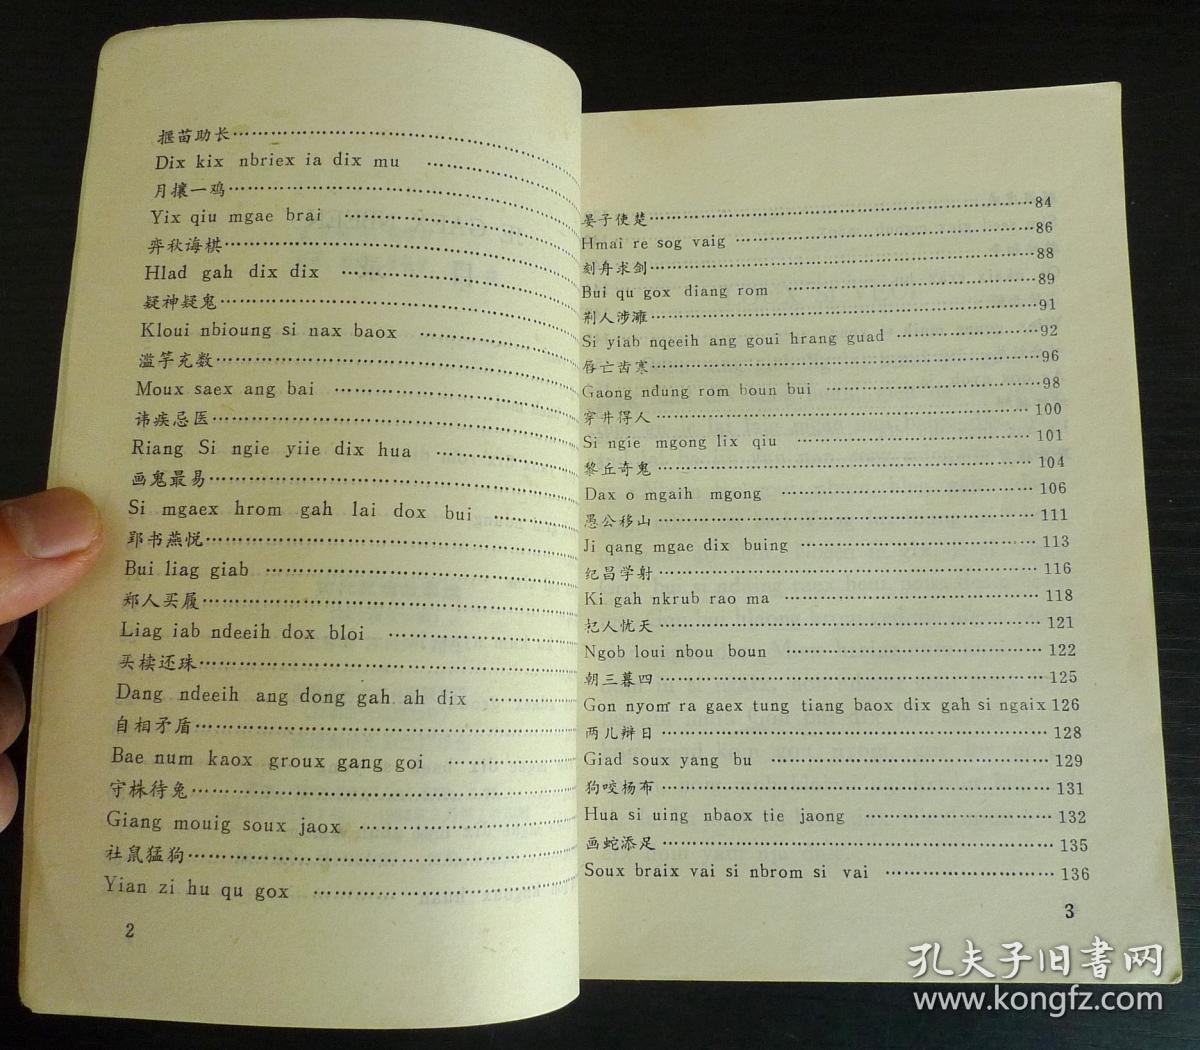 揠苗助长
Dix kix nbriex ia dix mu
月攘一鸡
Yix qiu mgae brai
弈秋诲棋
Hlad gah dix dix
疑神疑鬼
Kloui nbioung si nax baox
滥竽充数
Moux saex ang bai
讳疾忌医
Riang Si ngie yiie dix hua
画鬼最易
Si mgaex hrom gah lai dox bui
郢书燕悦
Bui liag giab
郑人买履
Liag iab ndeeih dox bloi
买椟还珠
Dang ndeeih ang dong gah ah dix
自相矛盾
Bae num kaox groux gang goi
守株待兔
Giang mouig soux jaox
社鼠猛狗
Yian zi hu qu gox
2
晏子使楚 84
Hmai re sog vaig 86
刻舟求剑 88
Bui qu gox diang rom 89
荆人涉澭 91
Si yiab nqeeih ang goui hrang guad 92
唇亡齿寒 96
Gaong ndung rom boun bui 98
穿井得人 100
Si ngie mgong lix qiu 101
黎丘奇鬼 104
Dax o mgaih mgong 106
愚公移山 111
Ji qang mgae dix buing 113
纪昌学射 116
Ki gah nkrub rao ma 118
杞人忧天 121
Ngob loui nbou boun 122
朝三暮四 125
Gon nyom ra gaex tung tiang baox dix gah si ngaix 126
两儿辩日 128
Giad soux yang bu 129
狗咬杨布 131
Hua si uing nbaox tie jaong 132
画蛇添足 135
Soux braix vai si nbrom si vai 136
3
孔夫子旧书网
www.kongfz.com